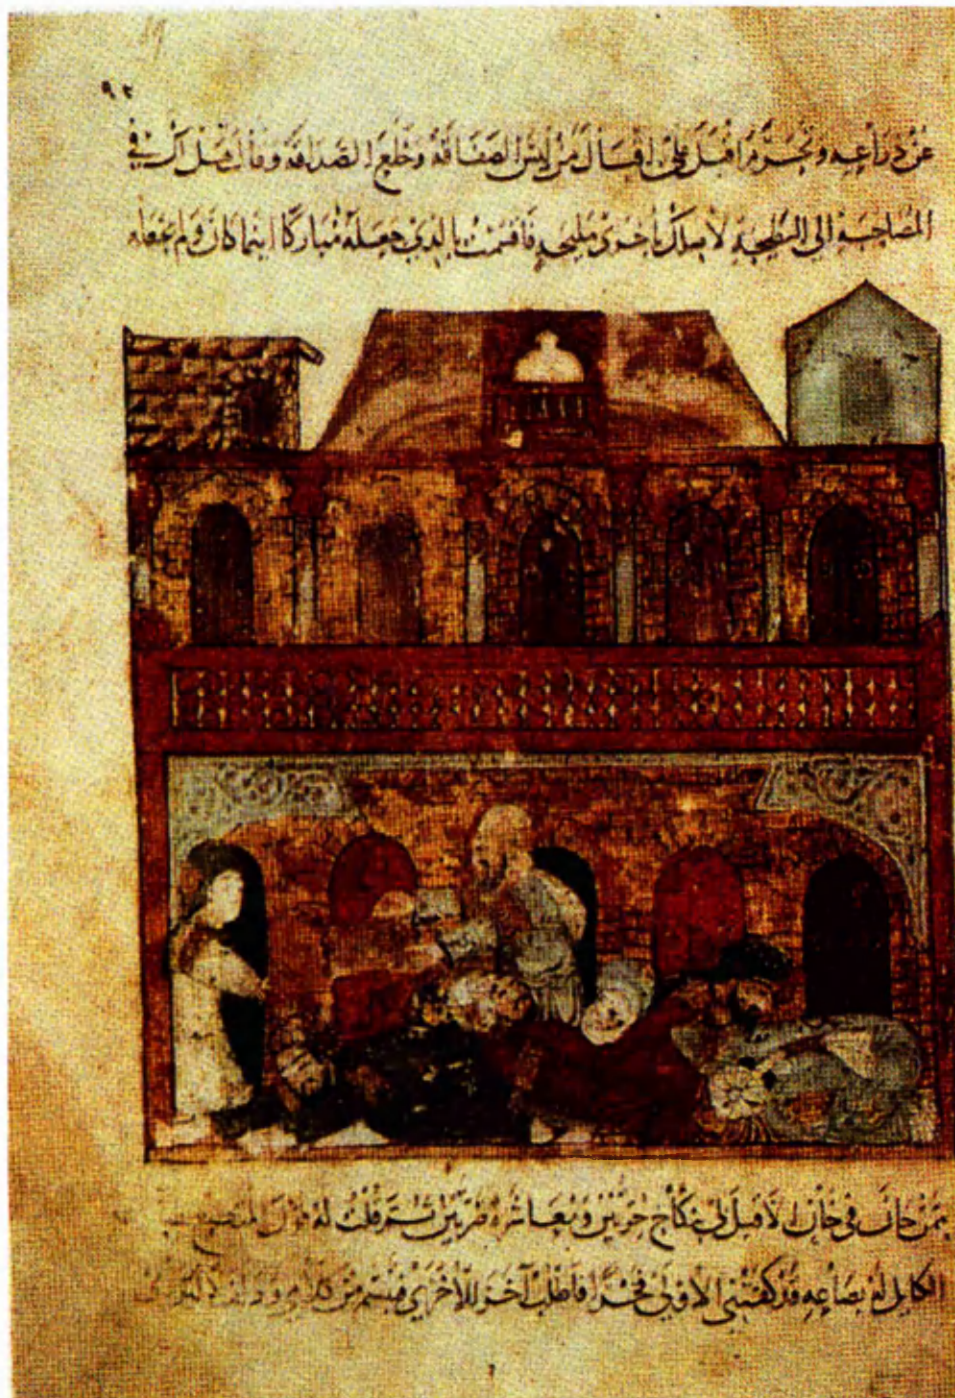 ٩٢
عن ذراعيه وتحزم اقبل علي اقبال من لبس الصفاقة وخلع الصداقة وقال هل لك في
المصاحبة الى البطيحة لاصلك باخرى مليحة فاقسمت بالذي جعله مباركا اينما كان ولم يجعله
ممن خان في خان لا قبل لي بنكاح حرتين ومعاشرة ضرتين ثم قلت له قول
الكايل له بصاعه قد كفتني الاولى فخرا فاطلب آخر للاخرى فتبسم من كلامي ودلف